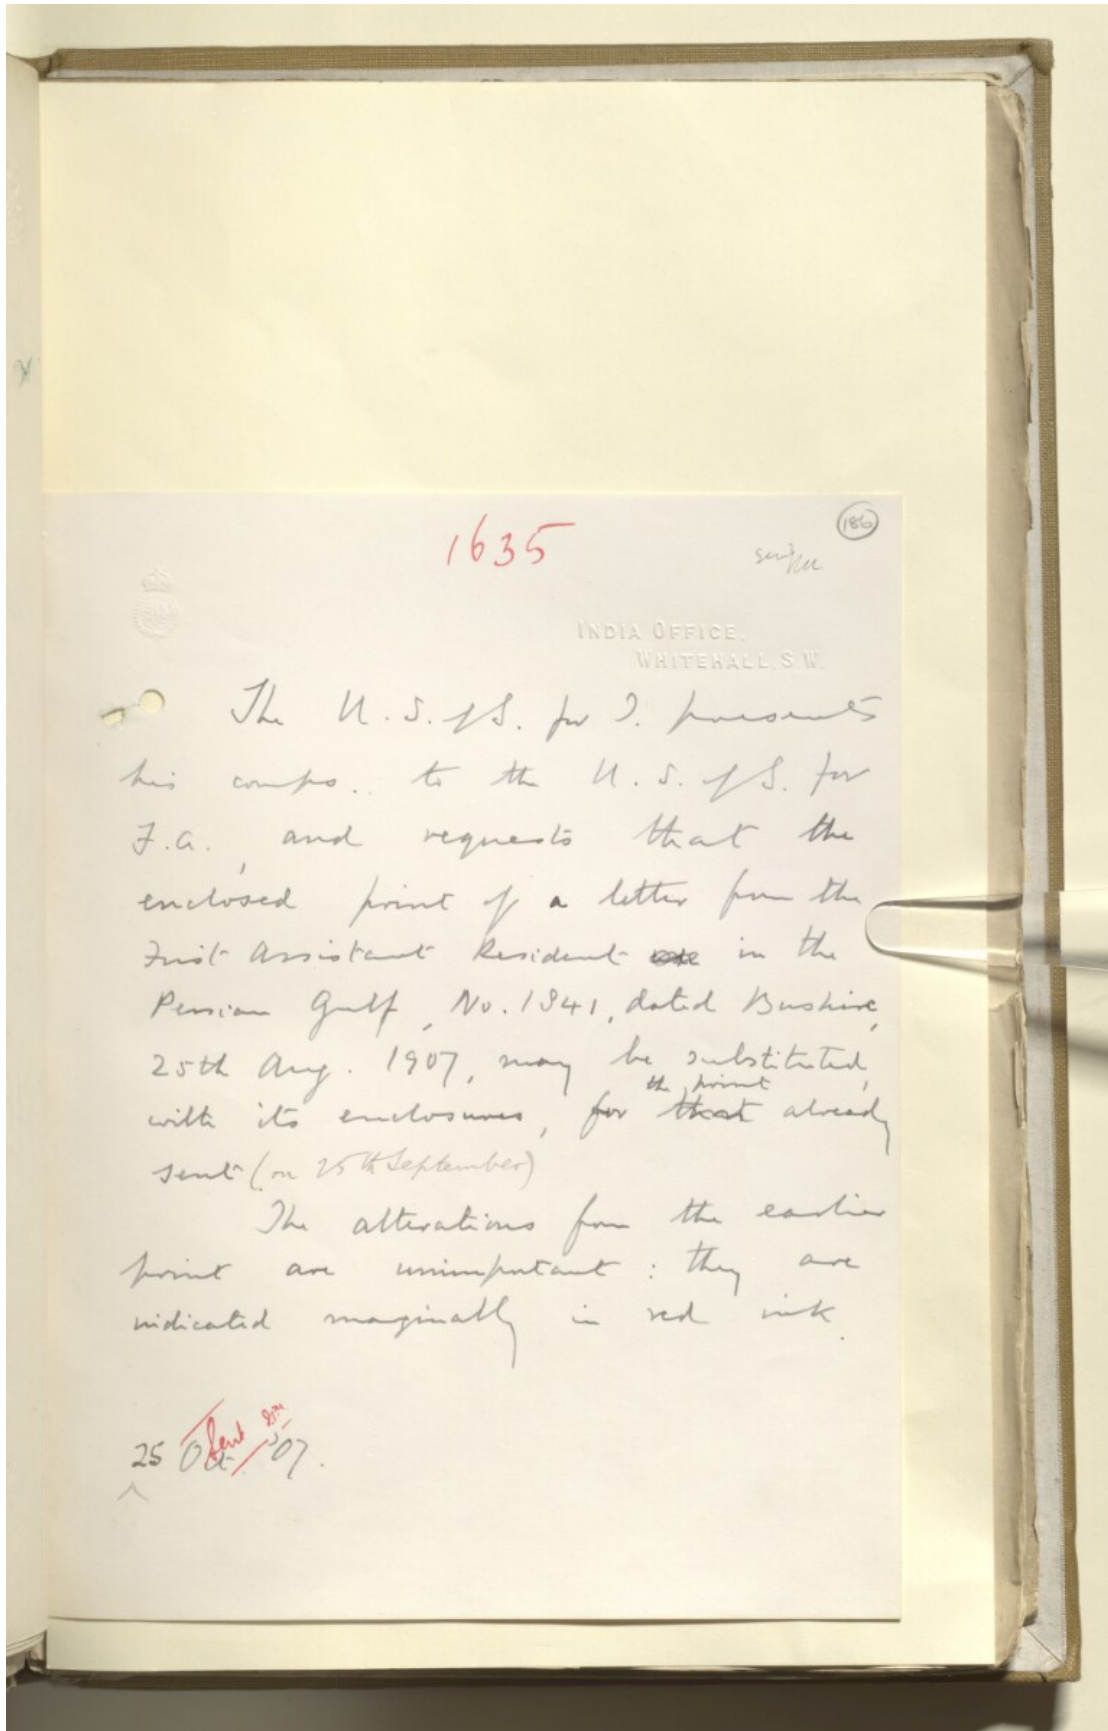 1635
186
INDIA OFFICE,
WHITEHALL, S.W.
The U. S. of S. for I. presents
his comps. to the U. S. of S. for
F.A., and requests that the
enclosed print of a letter from the
First Assistant Resident in the
Persian Gulf, No. 1841, dated Bushire,
25th Aug. 1907, may be substituted,
with its enclosures, for the print already
sent (on 25th September)
The alterations from the earlier
print are unimportant: they are
indicated marginally in red ink.
25 Oct. '07.
Sent